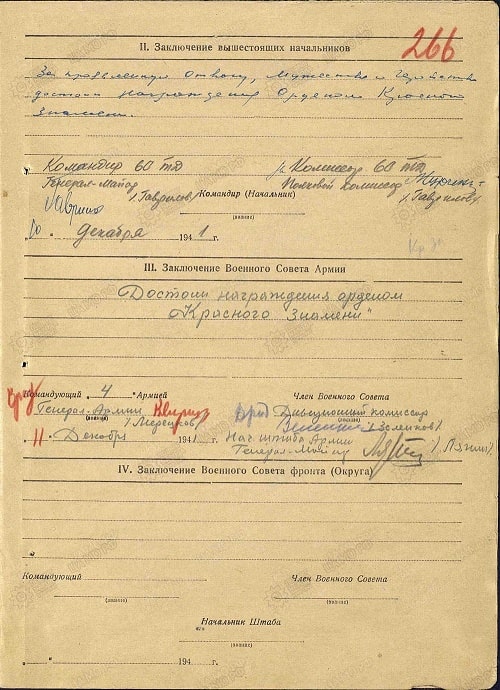 266
II. Заключение вышестоящих начальников
За проявленную отвагу, мужество и геройство
достоин награждения Орденом Красного
Знамени.
Командир 60 тд Комиссар 60 тд
Генерал-Майор Полковой комиссар
/Гаврилов/ Командир (Начальник) /Гаврилов/
(звание)
" 10 " декабря 1941 г.
III. Заключение Военного Совета Армии
Достоин награждения орденом
„Красного Знамени"
Командующий 4 Армией Член Военного Совета
Генерал-Армии Дивизионный комиссар
(звание)
/Мерецков/
" 11 " Декабря 1941 г. Нач штаба Армии
Генерал-Майор
IV. Заключение Военного Совета фронта (Округа)
Командующий Член Военного Совета
(звание) (звание)
Начальник Штаба
(звание)
" " 194 г.